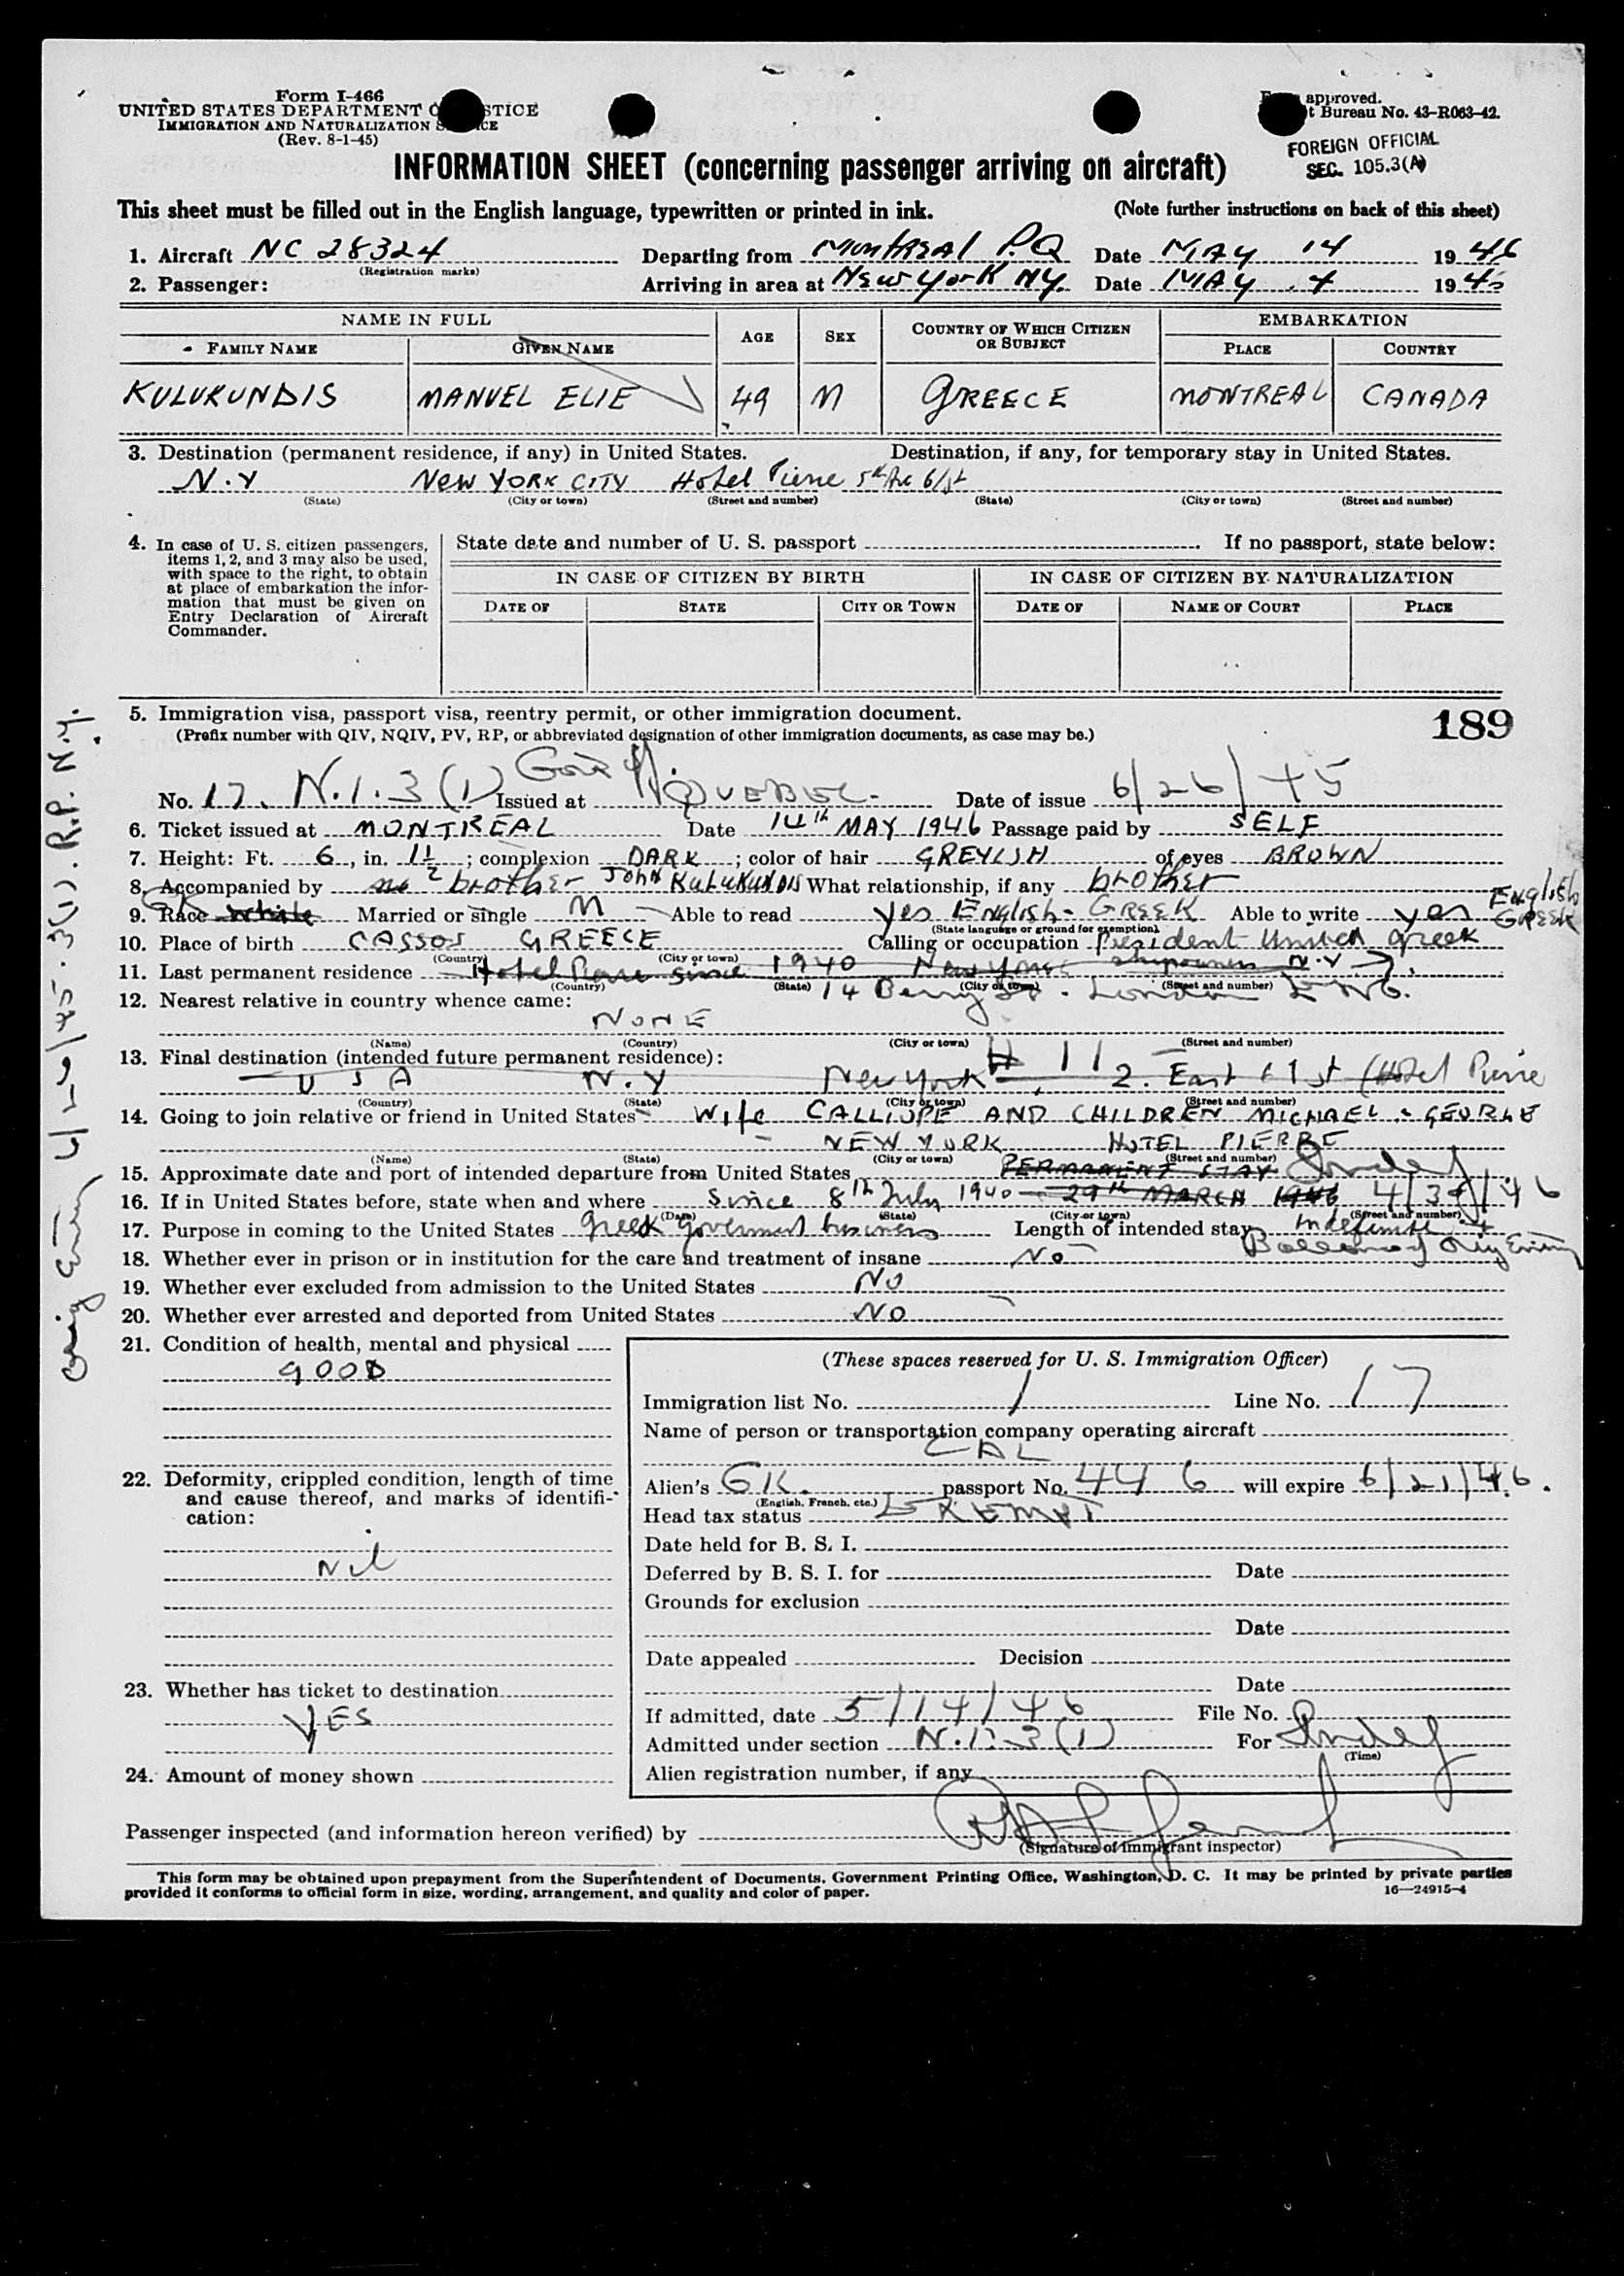 Form I-466
UNITED STATES DEPARTMENT O STICE
IMMIGRATION AND NATURALIZATION S CE
(Rev. 8-1-45)
approved.
t Bureau No. 43-R063-42.
FOREIGN OFFICIAL
SEC. 105.3(A)
INFORMATION SHEET (concerning passenger arriving on aircraft)
This sheet must be filled out in the English language, typewritten or printed in ink. (Note further instructions on back of this sheet)
1. Aircraft NC 28324 Departing from Montreal P.Q Date MAY 14 1946
(Registration marks)
2. Passenger: Arriving in area at New York NY. Date MAY 194
NAME IN FULL AGE SEX COUNTRY OF WHICH CITIZEN OR SUBJECT EMBARKATION
FAMILY NAME GIVEN NAME PLACE COUNTRY
KULUKUNDIS MANUEL ELIE 49 M GREECE MONTREAL CANADA
3. Destination (permanent residence, if any) in United States. Destination, if any, for temporary stay in United States.
N.Y NEW YORK CITY Hotel Pierre 5th Ave 61st
(State) (City or town) (Street and number) (State) (City or town) (Street and number)
4. In case of U. S. citizen passengers, items 1, 2, and 3 may also be used, with space to the right, to obtain at place of embarkation the information that must be given on Entry Declaration of Aircraft Commander.
State date and number of U. S. passport If no passport, state below:
IN CASE OF CITIZEN BY BIRTH IN CASE OF CITIZEN BY NATURALIZATION
DATE OF STATE CITY OR TOWN DATE OF NAME OF COURT PLACE
5. Immigration visa, passport visa, reentry permit, or other immigration document. 189
(Prefix number with QIV, NQIV, PV, RP, or abbreviated designation of other immigration documents, as case may be.)
No. 17. N.I. 3(1) Issued at QUEBEC- Date of issue 6/26/45
6. Ticket issued at MONTREAL Date 14th MAY 1946 Passage paid by SELF
7. Height: Ft. 6, in. 1 1/2; complexion DARK; color of hair GREYISH of eyes BROWN
8. Accompanied by brother John KULUKUNDIS What relationship, if any brother
9. Race White GK Married or single M Able to read Yes English - GREEK Able to write yes English GREEK
(State language or ground for exemption)
10. Place of birth CASSOS GREECE Calling or occupation President United Greek shipowners N.Y
(Country) (City or town)
11. Last permanent residence Hotel Pierre since 1940 New York
(Country) (State) (City or town) (Street and number)
14 Berry St. London
12. Nearest relative in country whence came:
NONE
(Name) (Country) (City or town) (Street and number)
13. Final destination (intended future permanent residence):
USA N.Y New York 2. East 61st (Hotel Pierre
(Country) (State) (City or town) (Street and number)
14. Going to join relative or friend in United States Wife CALLIOPE AND CHILDREN MICHAEL - GEORGE
NEW YORK HOTEL PIERRE
(Name) (State) (City or town) (Street and number)
15. Approximate date and port of intended departure from United States PERMANENT STAY Indef
16. If in United States before, state when and where Since 8th July 1940 - 29th MARCH 1946 4/30/46
(Date) (State) (City or town) (Street and number)
17. Purpose in coming to the United States Greek government business Length of intended stay Indefinite
18. Whether ever in prison or in institution for the care and treatment of insane No
19. Whether ever excluded from admission to the United States No
20. Whether ever arrested and deported from United States No
21. Condition of health, mental and physical
GOOD
22. Deformity, crippled condition, length of time and cause thereof, and marks of identification:
Nil
23. Whether has ticket to destination
YES
24. Amount of money shown
(These spaces reserved for U. S. Immigration Officer)
Immigration list No. 1 Line No. 17
Name of person or transportation company operating aircraft
CAL
Alien's GK. passport No. 446 will expire 6/21/46.
(English, French, etc.)
Head tax status EXEMPT
Date held for B. S. I.
Deferred by B. S. I. for Date
Grounds for exclusion
Date
Date appealed Decision
Date
If admitted, date 5/14/46 File No.
Admitted under section N.I. 3(1) For Indef
(Time)
Alien registration number, if any
Passenger inspected (and information hereon verified) by
(Signature of immigrant inspector)
This form may be obtained upon prepayment from the Superintendent of Documents, Government Printing Office, Washington, D. C. It may be printed by private parties
provided it conforms to official form in size, wording, arrangement, and quality and color of paper. 16—24915-4